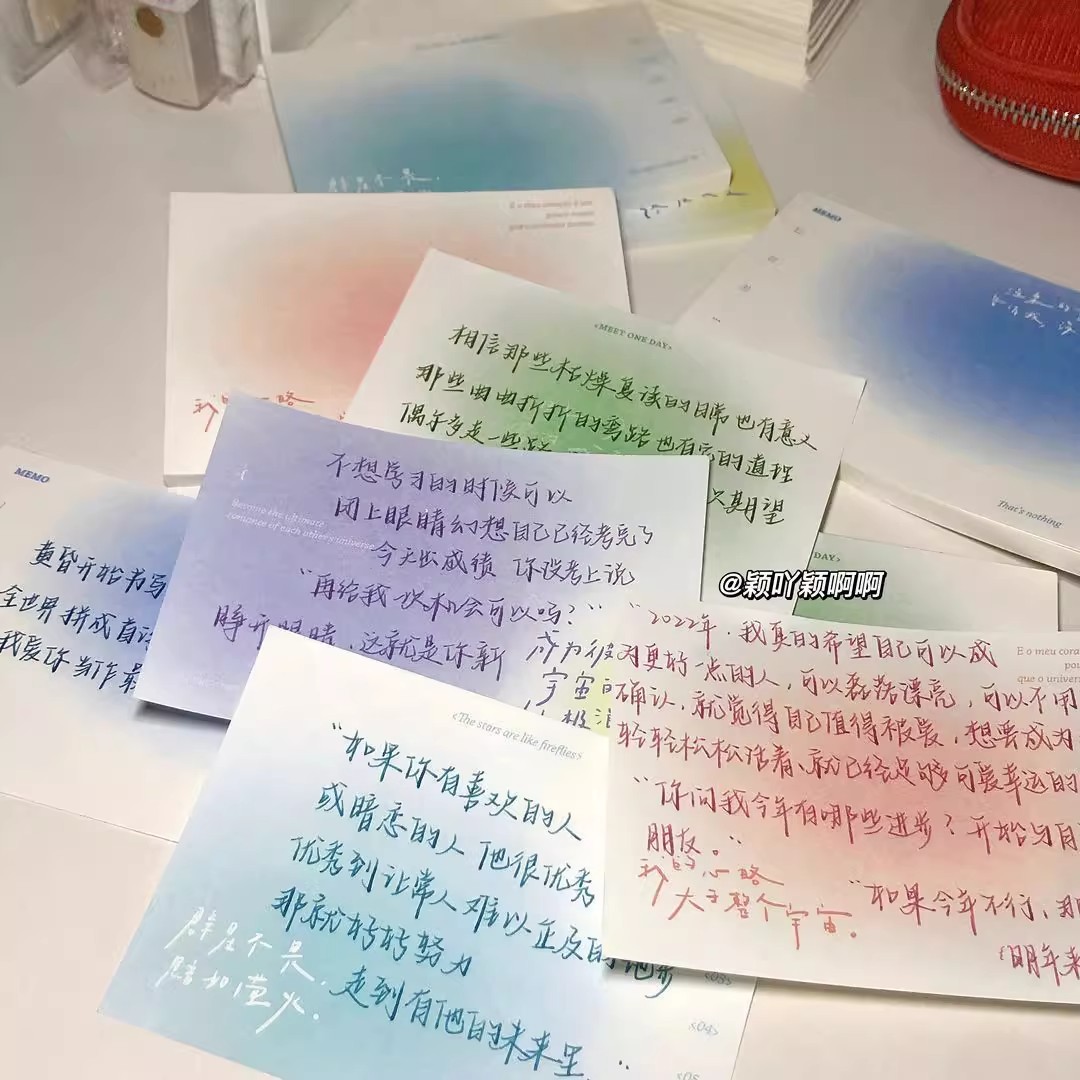 群星不是,
E o meu coração é um
MEMO
That's nothing
<MEET ONE DAY>
相信那些枯燥复读的日常也有意义
那些曲曲折折的弯路也有它的道理
偶尔多走一些路
只期望
DAY>
@颖吖颖啊啊
Become the ultimate
romance of each other's universe
不想学习的时候可以
闭上眼睛幻想自己已经考完了
今天出成绩 你没考上说
"再给我一次机会可以吗?"
睁开眼睛,这就是你新
成为彼
宇宙的
极浪
MEMO
黄昏开始书写
全世界拼成自
我爱你当作最
"2022年,我真的希望自己可以成
为更好一点的人,可以磊落漂亮,可以不用
确认,就觉得自己值得被爱,想要成为
轻轻松松活着、就已经足够可爱幸运的
"你问我今年有哪些进步?开始与自
朋友。"
我的心略
大于整个宇宙。
"如果今年不行,那
明年来
E o meu cora
pou
que o univers
<The stars are like fireflies>
"如果你有喜欢的人
或暗恋的人 他很优秀
优秀到让常人难以企及的地步
那就好好努力
走到有他的未来里"
群星不是,
暗如萤火.
<03>
<04>
<05